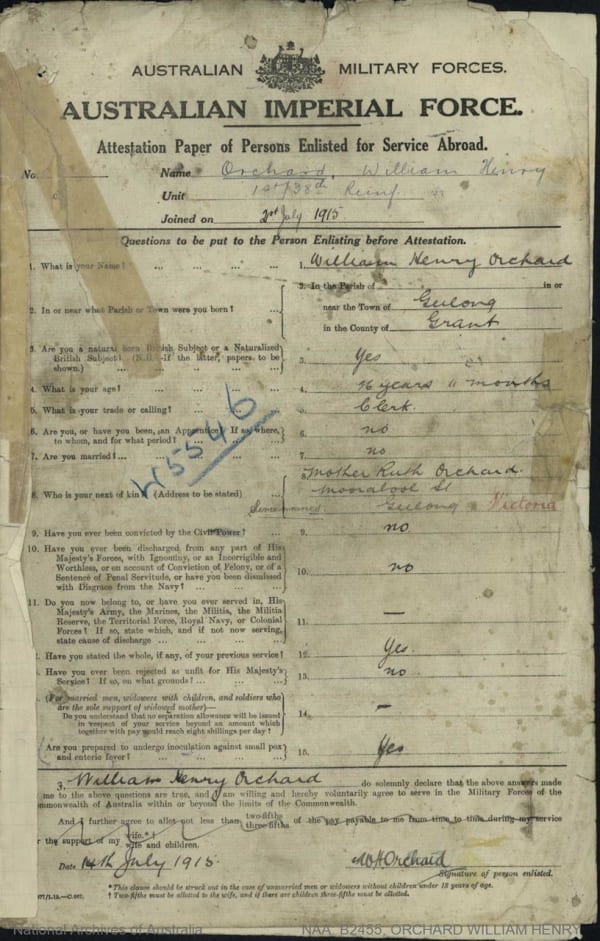 AUSTRALIAN MILITARY FORCES.
AUSTRALIAN IMPERIAL FORCE.
Attestation Paper of Persons Enlisted for Service Abroad.
No.
Name Orchard, William Henry
Unit 1st/38th Reinf.
Joined on July 1915
Questions to be put to the Person Enlisting before Attestation.
1. What is your Name? ... ... ... ... 1. William Henry Orchard
2. In or near what Parish or Town were you born? ... 2. In the Parish of in or
near the Town of Geelong
in the County of Grant
3. Are you a natural born British Subject or a Naturalized
British Subject? (N.B.-If the latter, papers to be
shown.) ... 3. Yes
4. What is your age? ... ... ... ... 4. years 11 months
5. What is your trade or calling? ... ... ... 5. Clerk.
6. Are you, or have you been, an Apprentice? If so, where,
to whom, and for what period? ... ... ... 6. no
7. Are you married? ... ... ... ... 7. no
W5546
8. Who is your next of kin? (Address to be stated) 8. Mother Ruth Orchard.
Moorabool St
Since married. Geelong Victoria
9. Have you ever been convicted by the Civil Power? ... 9. no
10. Have you ever been discharged from any part of His
Majesty's Forces, with Ignominy, or as Incorrigible and
Worthless, or on account of Conviction of Felony, or of a
Sentence of Penal Servitude, or have you been dismissed
with Disgrace from the Navy? ... ... ... 10. no
11. Do you now belong to, or have you ever served in, His
Majesty's Army, the Marines, the Militia, the Militia
Reserve, the Territorial Force, Royal Navy, or Colonial
Forces? If so, state which, and if not now serving,
state cause of discharge ... ... ... 11. —
Have you stated the whole, if any, of your previous service? 12. Yes.
Have you ever been rejected as unfit for His Majesty's
Service? If so, on what grounds? ... ... ... 13. no
(For married men, widowers with children, and soldiers who
are the sole support of widowed mother)—
Do you understand that no separation allowance will be issued
in respect of your service beyond an amount which
together with pay would reach eight shillings per day? 14. —
Are you prepared to undergo inoculation against small pox
and enteric fever? ... ... ... ... 15. Yes
William Henry Orchard do solemnly declare that the above answers made
me to the above questions are true, and I am willing and hereby voluntarily agree to serve in the Military Forces of the
mmonwealth of Australia within or beyond the limits of the Commonwealth.
And I further agree to allot not less than two-fifths three-fifths of the pay payable to me from time to time during my service
r the support of my wife.*†
wife and children.
Date 14th July 1915. WHOrchard
Signature of person enlisted.
*This clause should be struck out in the case of unmarried men or widowers without children under 18 years of age.
† Two-fifths must be allotted to the wife, and if there are children three-fifths must be allotted.
National Archives of Australia NAA: B2455, ORCHARD WILLIAM HENRY